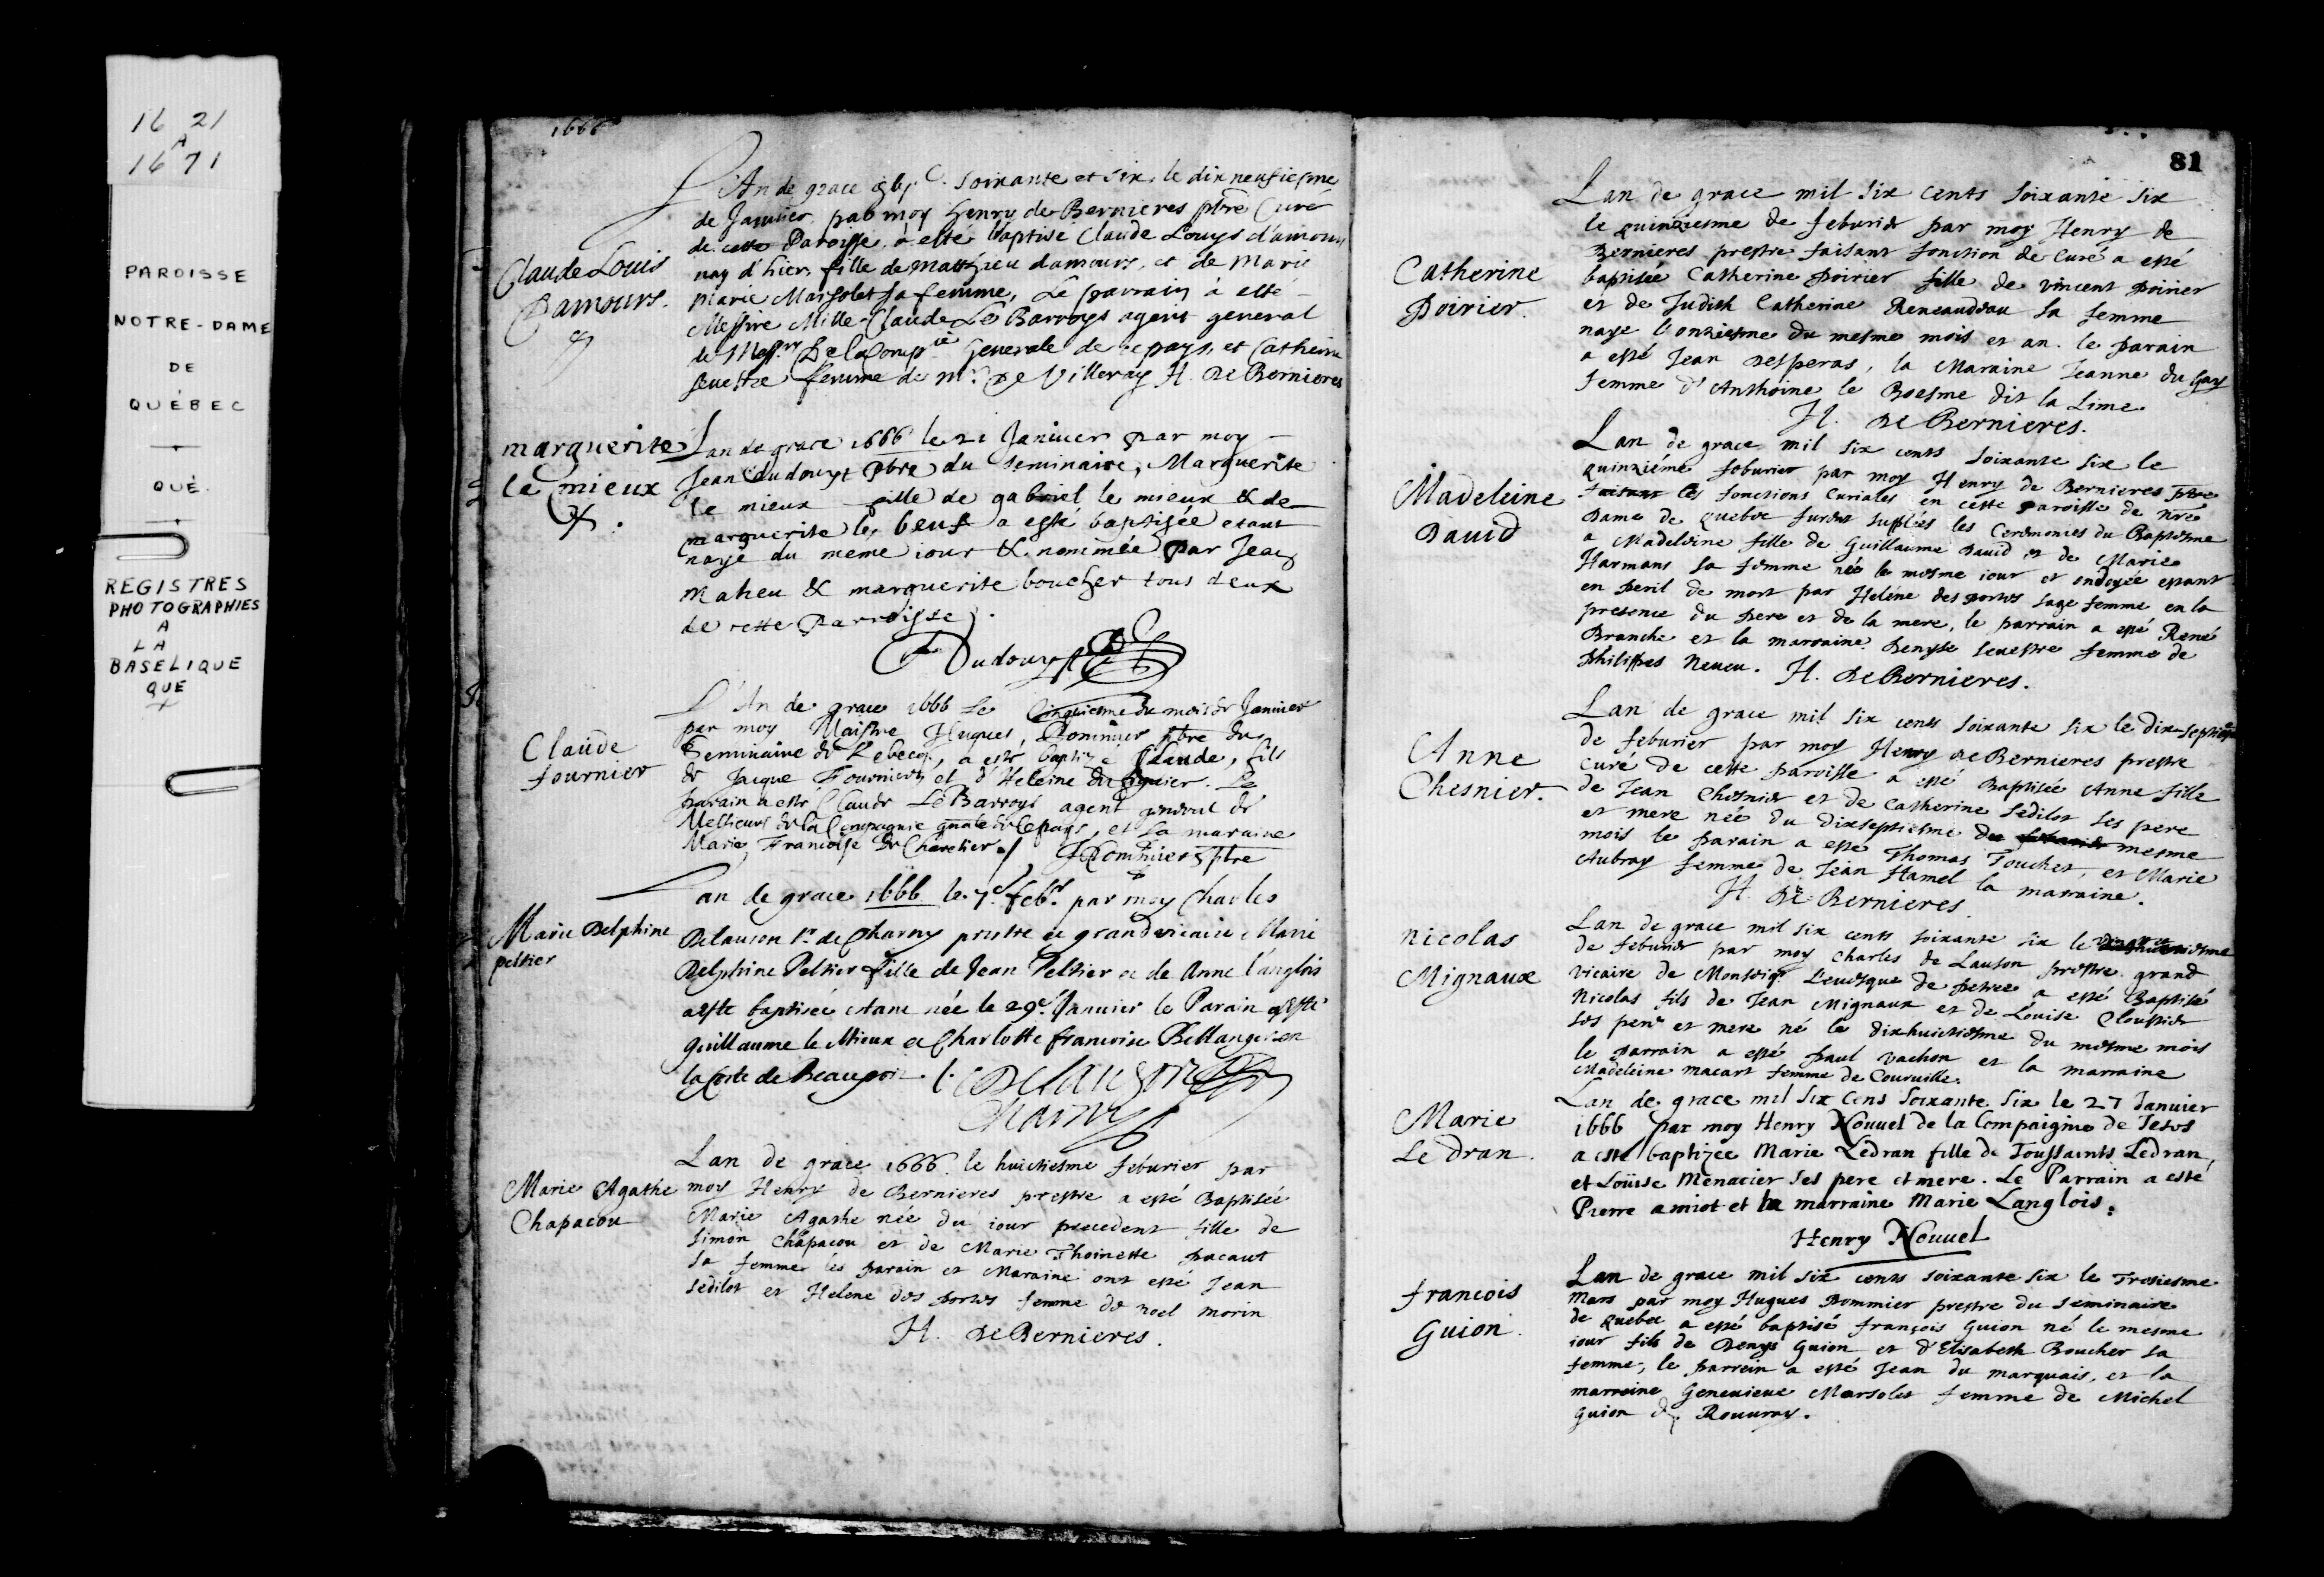 16 21
A
16 71
PAROISSE
NOTRE-DAME
DE
QUÉBEC
QUÉ.
REGISTRES
PHOTOGRAPHIES
A
LA
BASELIQUE
QUE
1666
Claude Louis
Damours.
L'An de grace soixante et six, le dix neufiesme
de Janvier par moy Henry de Bernieres pbre Curé
de cette Paroisse, à esté baptisé Claude Louys d'amours
nay d'hier, fille de Matthieu damours, et de Marie
Marie Marsolet sa femme, Le parrain à esté
Messire Mille-Claude Le Barroys agent general
de Messrs De la Compie Generale de ce pays, et Catherine
sevestre femme de Mr. De Villeray H. De Bernieres
marguerite
le mieux
Lan de grace 1666 le 21 Janiuer par moy
Jean dudouyt pbre du seminaire, Marguerite
le mieux fille de gabriel le mieux & de
marguerite le beuf a esté baptisée etant
naye du meme iour & nommée par Jean
maheu & marguerite boucher tous deux
de cette parroisse.
Dudouyt
Claude
fournier
L'An de grace 1666 Le Cinquiesme du mois de Janvier
par moy Maistre Hugues Pommier pbre du
Seminaire de Kebecq, a esté baptizé Claude, fils
de Jacque Fournier et d'Heleine du figuier. Le
parain a esté Claude Le Barroys agent general de
Messieurs de la Compagnie gnale de ce pays, et la maraine
Marie, Francoise de Charetier. / H Pommier pbre
Marie Delphine
peltier
Lan de grace 1666 le 7e feb. par moy Charles
Delauson Sr de Charny prestre et grand vicaire Marie
Delphine Peltier fille de Jean Peltier et de Anne l'anglois
a esté baptisée estant née le 29e Januier le Parain a esté
Guillaume le Mieux et Charlotte francoise Bellanger en
la Coste de Beaupré. C. Delauson
Charny
Marie Agathe
Chapacou
Lan de grace 1666. le huictiesme feburier par
moy Henry de Bernieres prestre a esté Baptisée
Marie Agathe née du iour precedent fille de
Simon Chapacou et de Marie Thoinette pacaut
sa femme les parain et Maraine ont esté Jean
sedilot et Helene des portes femme de noel morin
H. De Bernieres.
81
Catherine
Poirier.
Lan de grace mil six cents soixante six
le quinziesme de feburier par moy Henry de
Bernieres prestre faisant fonction de Curé a esté
baptisée Catherine poirier fille de vincent poirier
et de Judith Catherine Reneaudeau sa femme
naye l'onziesme du mesme mois et an. le parain
a esté Jean Desperas, la Maraine Jeanne du Gay
femme d'Anthoine le Boesme dit la Lime.
H. De Bernieres.
Madeleine
Dauid
Lan de grace mil six cents soixante six le
quinziéme feburier par moy Henry de Bernieres pbre
faisant les fonctions Curiales en cette paroisse de nre
Dame de quebec furent supplées les Ceremonies du Baptesme
a Madeleine fille de Guillaume Dauid et de Marie
Harmans sa femme née le mesme iour et ondoyée estant
en peril de mort par Helene des portes sage femme en la
presence du pere et de la mere, le parrain a esté René
Branche et la marraine Denyse seuestre femme de
philippes neueu. H. De Bernieres.
Anne
Chesnier.
Lan de grace mil six cents soixante six le dix-septiesme
de feburier par moy Henry de Bernieres prestre
curé de cette paroisse a esté Baptisée Anne fille
de Jean Chesnier et de Catherine Sedilot ses pere
et mere née du dixseptiesme du mesme
mois le parain a esté Thomas Touchet, et Marie
Aubray femme de Jean Hamel la marraine.
H. De Bernieres.
Nicolas
Mignaux
Lan de grace mil six cents soixante six le
de feburier par moy Charles de Lauson prestre grand
vicaire de Monseigr L'euesque de petrée a esté Baptisé
Nicolas fils de Jean Mignaux et de Louise Cloustier
ses pere et mere né le dixhuictiesme du mesme mois
le parrain a esté paul vachon et la marraine
Madeleine macart femme de Couruille.
Marie
Le Dran.
Lan de grace mil six Cens soixante six le 27 Januier
1666 par moy Henry Nouuel de la Compaignie de Jesus
a esté baptizee Marie Ledran fille de Toussaints Ledran,
et Loüise Menacier ses pere et mere. Le Parrain a esté
Pierre amiot et la marraine Marie Langlois.
Henry Nouuel
francois
Guion.
Lan de grace mil six cents soixante six le Troisiesme
Mars par moy Hugues Pommier prestre du seminaire
de Quebec a esté baptisé françois Guion né le mesme
iour fils de Denys Guion et d'Elisabeth Boucher sa
femme, le parrein a esté Jean du marquais, et la
marraine Geneuieue Marsolet femme de Michel
Guion du Rouuray.